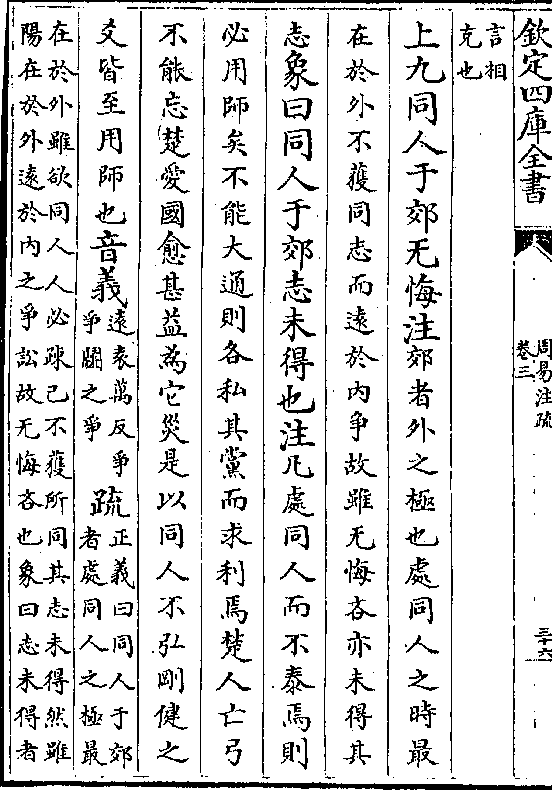 欽定四庫全書
周易注疏
卷三
三十六
言相
克也
上九同人于郊无悔注郊者外之極也處同人之時最
在於外不獲同志而遠於内爭故雖无悔吝亦未得其
志象曰同人于郊志未得也注凡處同人而不泰焉則
必用師矣不能大通則各私其黨而求利焉楚人亡弓
不能忘楚愛國愈甚益為它災是以同人不弘剛健之
爻皆至用師也音義
遠袁萬反爭
爭鬬之爭
疏
正義曰同人于郊
者處同人之極最
在於外雖欲同人人必疎己不獲所同其志未得然雖
陽在於外遠於内之爭訟故无悔吝也象曰志未得者